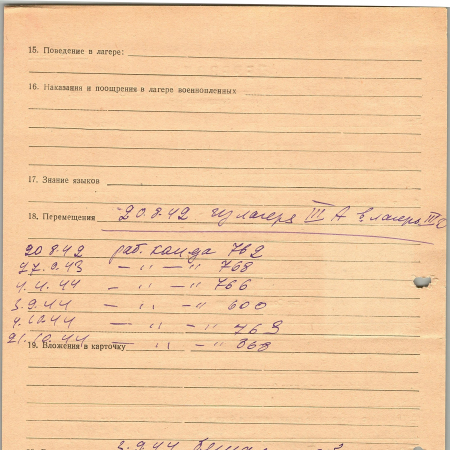 15. Поведение в лагере:
16. Наказания и поощрения в лагере военнопленных
17. Знание языков
18. Перемещения 20.8.42 из лагеря III А в лагерь III
20.8.42 раб. команда 762
27. 43 — " — " 768
4.44 — " — " 766
3.9.44 — " — " 600
4. 44 — " — " 763
21.10.44 — " — " 868
19. Вложения в карточку
3.9.44